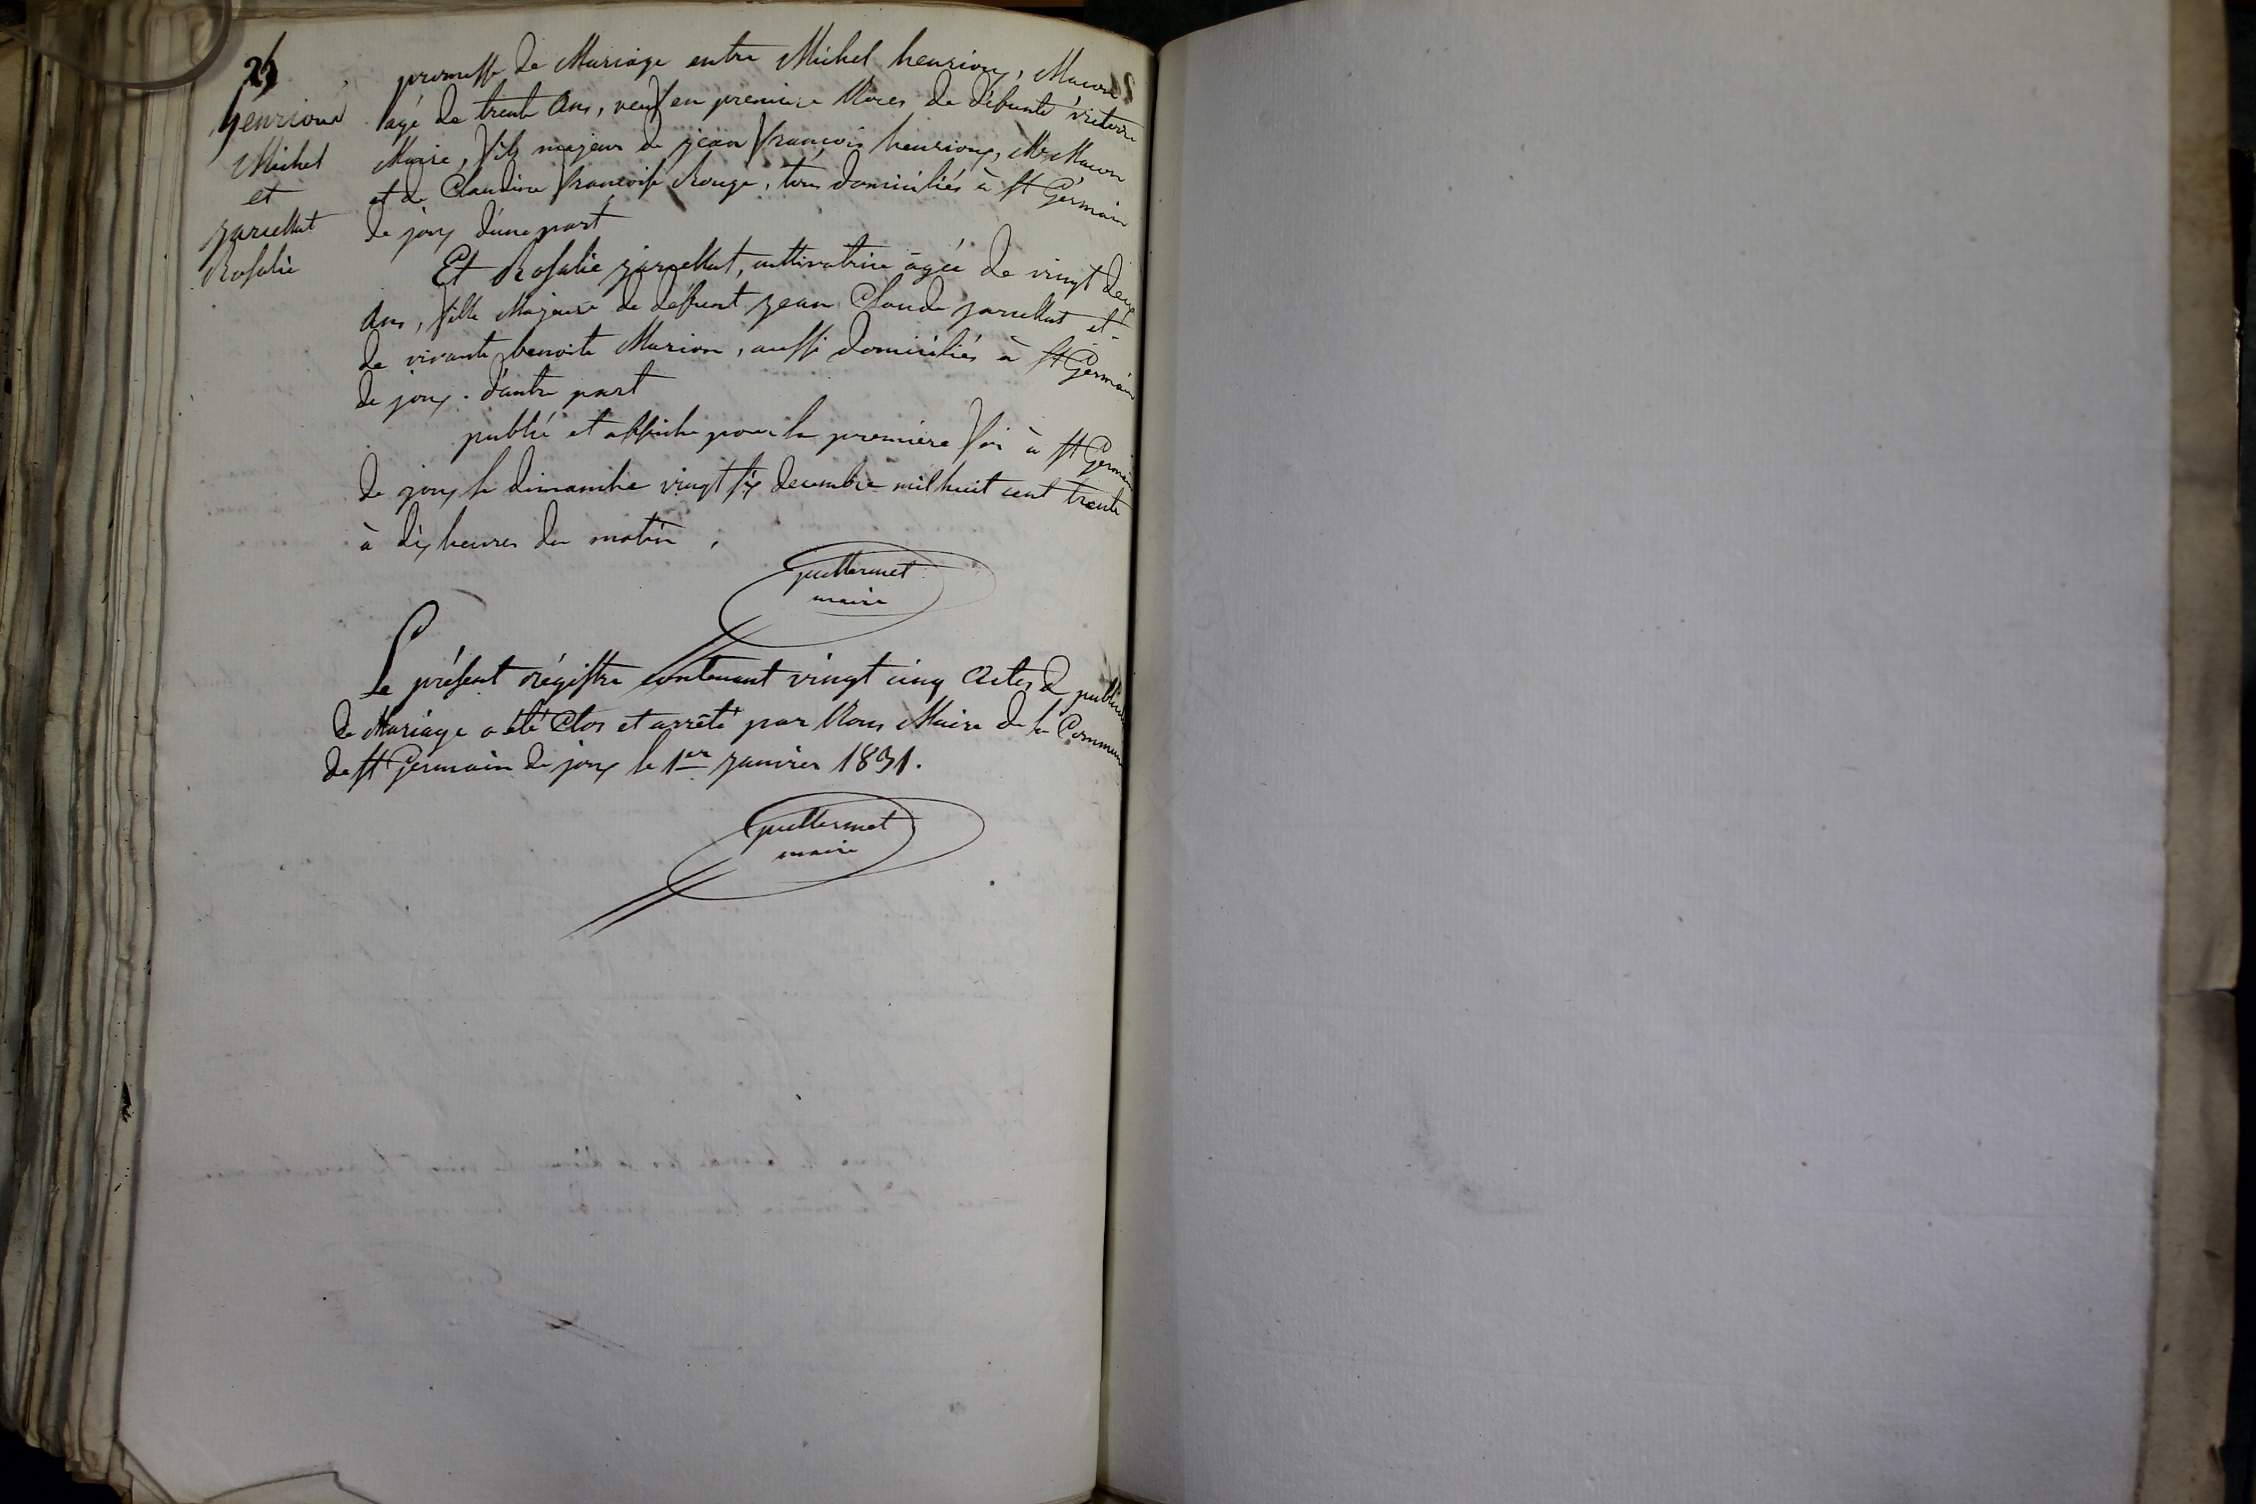 25
henrioux
Michel
et
jarcellat
Rosalie
promesse de Mariage entre Michel henrioux, Macon
agé de trente Ans, veuf en premiere Noces de défunte
Marie, fils majeur de jean françois henrioux, Me Macon
et de Claudine françoise Rouge, tous domiciliés à St Germain
de joux d'une part
Et Rosalie jarcellat, cultivatrice âgée de vingt deux
Ans, fille Majeure de deffunt jean Claude jarcellat et
de vivante benoite Marion, aussi domiciliés à St Germain
de joux. d'autre part
publié et affiché pour la premiere fois à St Germain
de joux le dimanche vingt six decembre mil huit cent trente
à dix heures du matin.
guillermet
maire
Le présent régistre contenant vingt cinq Actes de
de Mariage a été Clos et arrêté par Nous Maire de la Commune
de St Germain de joux le 1er janvier 1831.
guillermet
maire